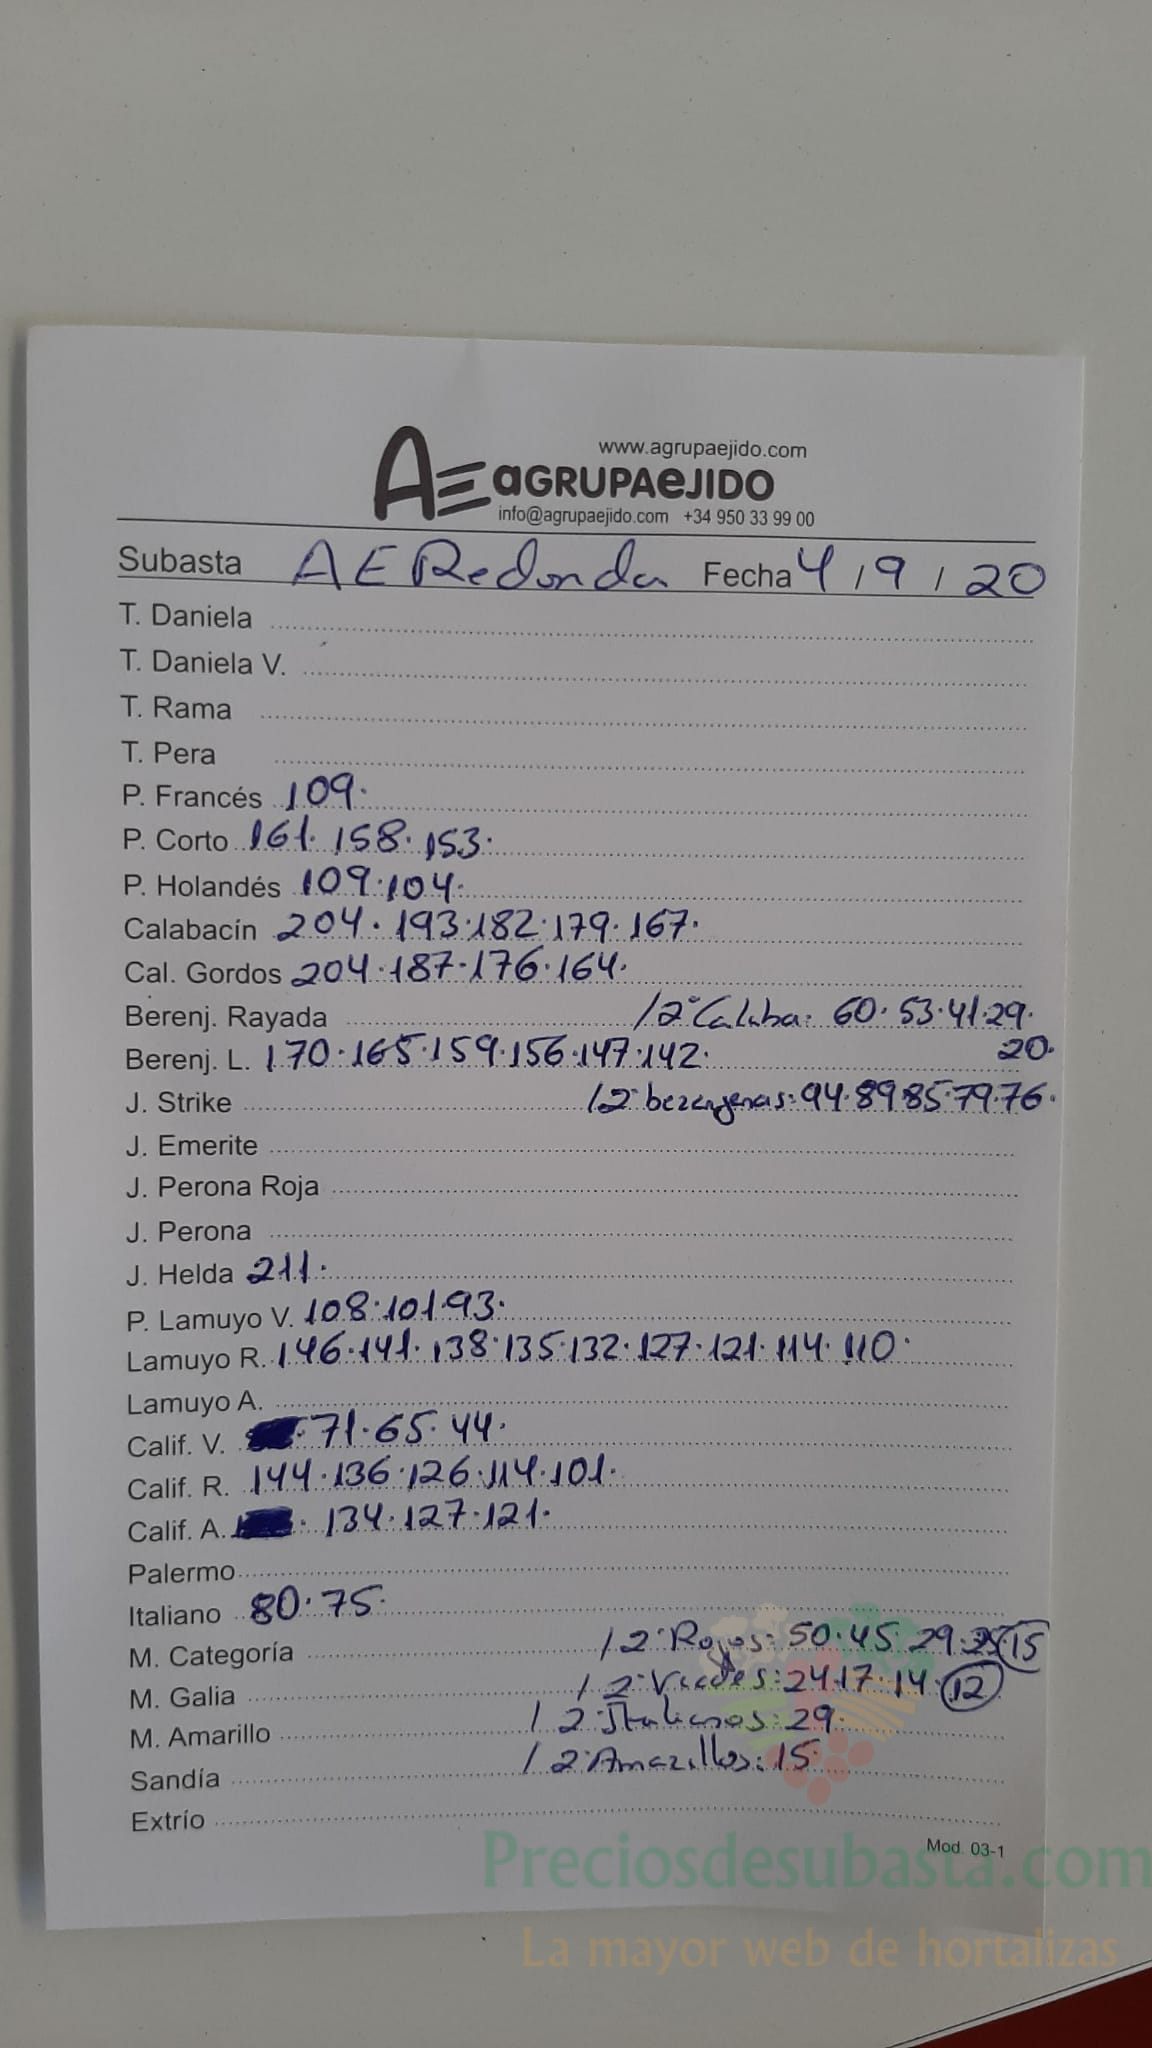 www.agrupaejido.com
AE aGRUPAeJIDO
info@agrupaejido.com +34 950 33 99 00
Subasta AE Redonda Fecha 4 / 9 / 20
T. Daniela
T. Daniela V.
T. Rama
T. Pera
P. Francés 109.
P. Corto 161. 158. 153.
P. Holandés 109. 104.
Calabacín 204. 193. 182. 179. 167.
Cal. Gordos 204. 187. 176. 164.
Berenj. Rayada / 2ª Calaba: 60. 53. 41. 29.
20.
Berenj. L. 170. 165. 159. 156. 147. 142.
J. Strike / 2ª berenjenas: 94. 89 85. 79. 76.
J. Emerite
J. Perona Roja
J. Perona
J. Helda 211.
P. Lamuyo V. 108. 101. 93.
Lamuyo R. 146. 141. 138. 135. 132. 127. 121. 114. 110.
Lamuyo A.
Calif. V. . 71. 65. 44.
Calif. R. 144. 136. 126. 114. 101.
Calif. A. . 134. 127. 121.
Palermo
Italiano 80. 75.
M. Categoría / 2ª Rojos: 50. 45. 29. 15
M. Galia / 2ª Verdes: 24 17. 14. 12
M. Amarillo / 2ª Italianos: 29.
Sandía / 2ª Amarillos: 15.
Extrío
Mod. 03-1
Preciosdesubasta.com
La mayor web de hortalizas